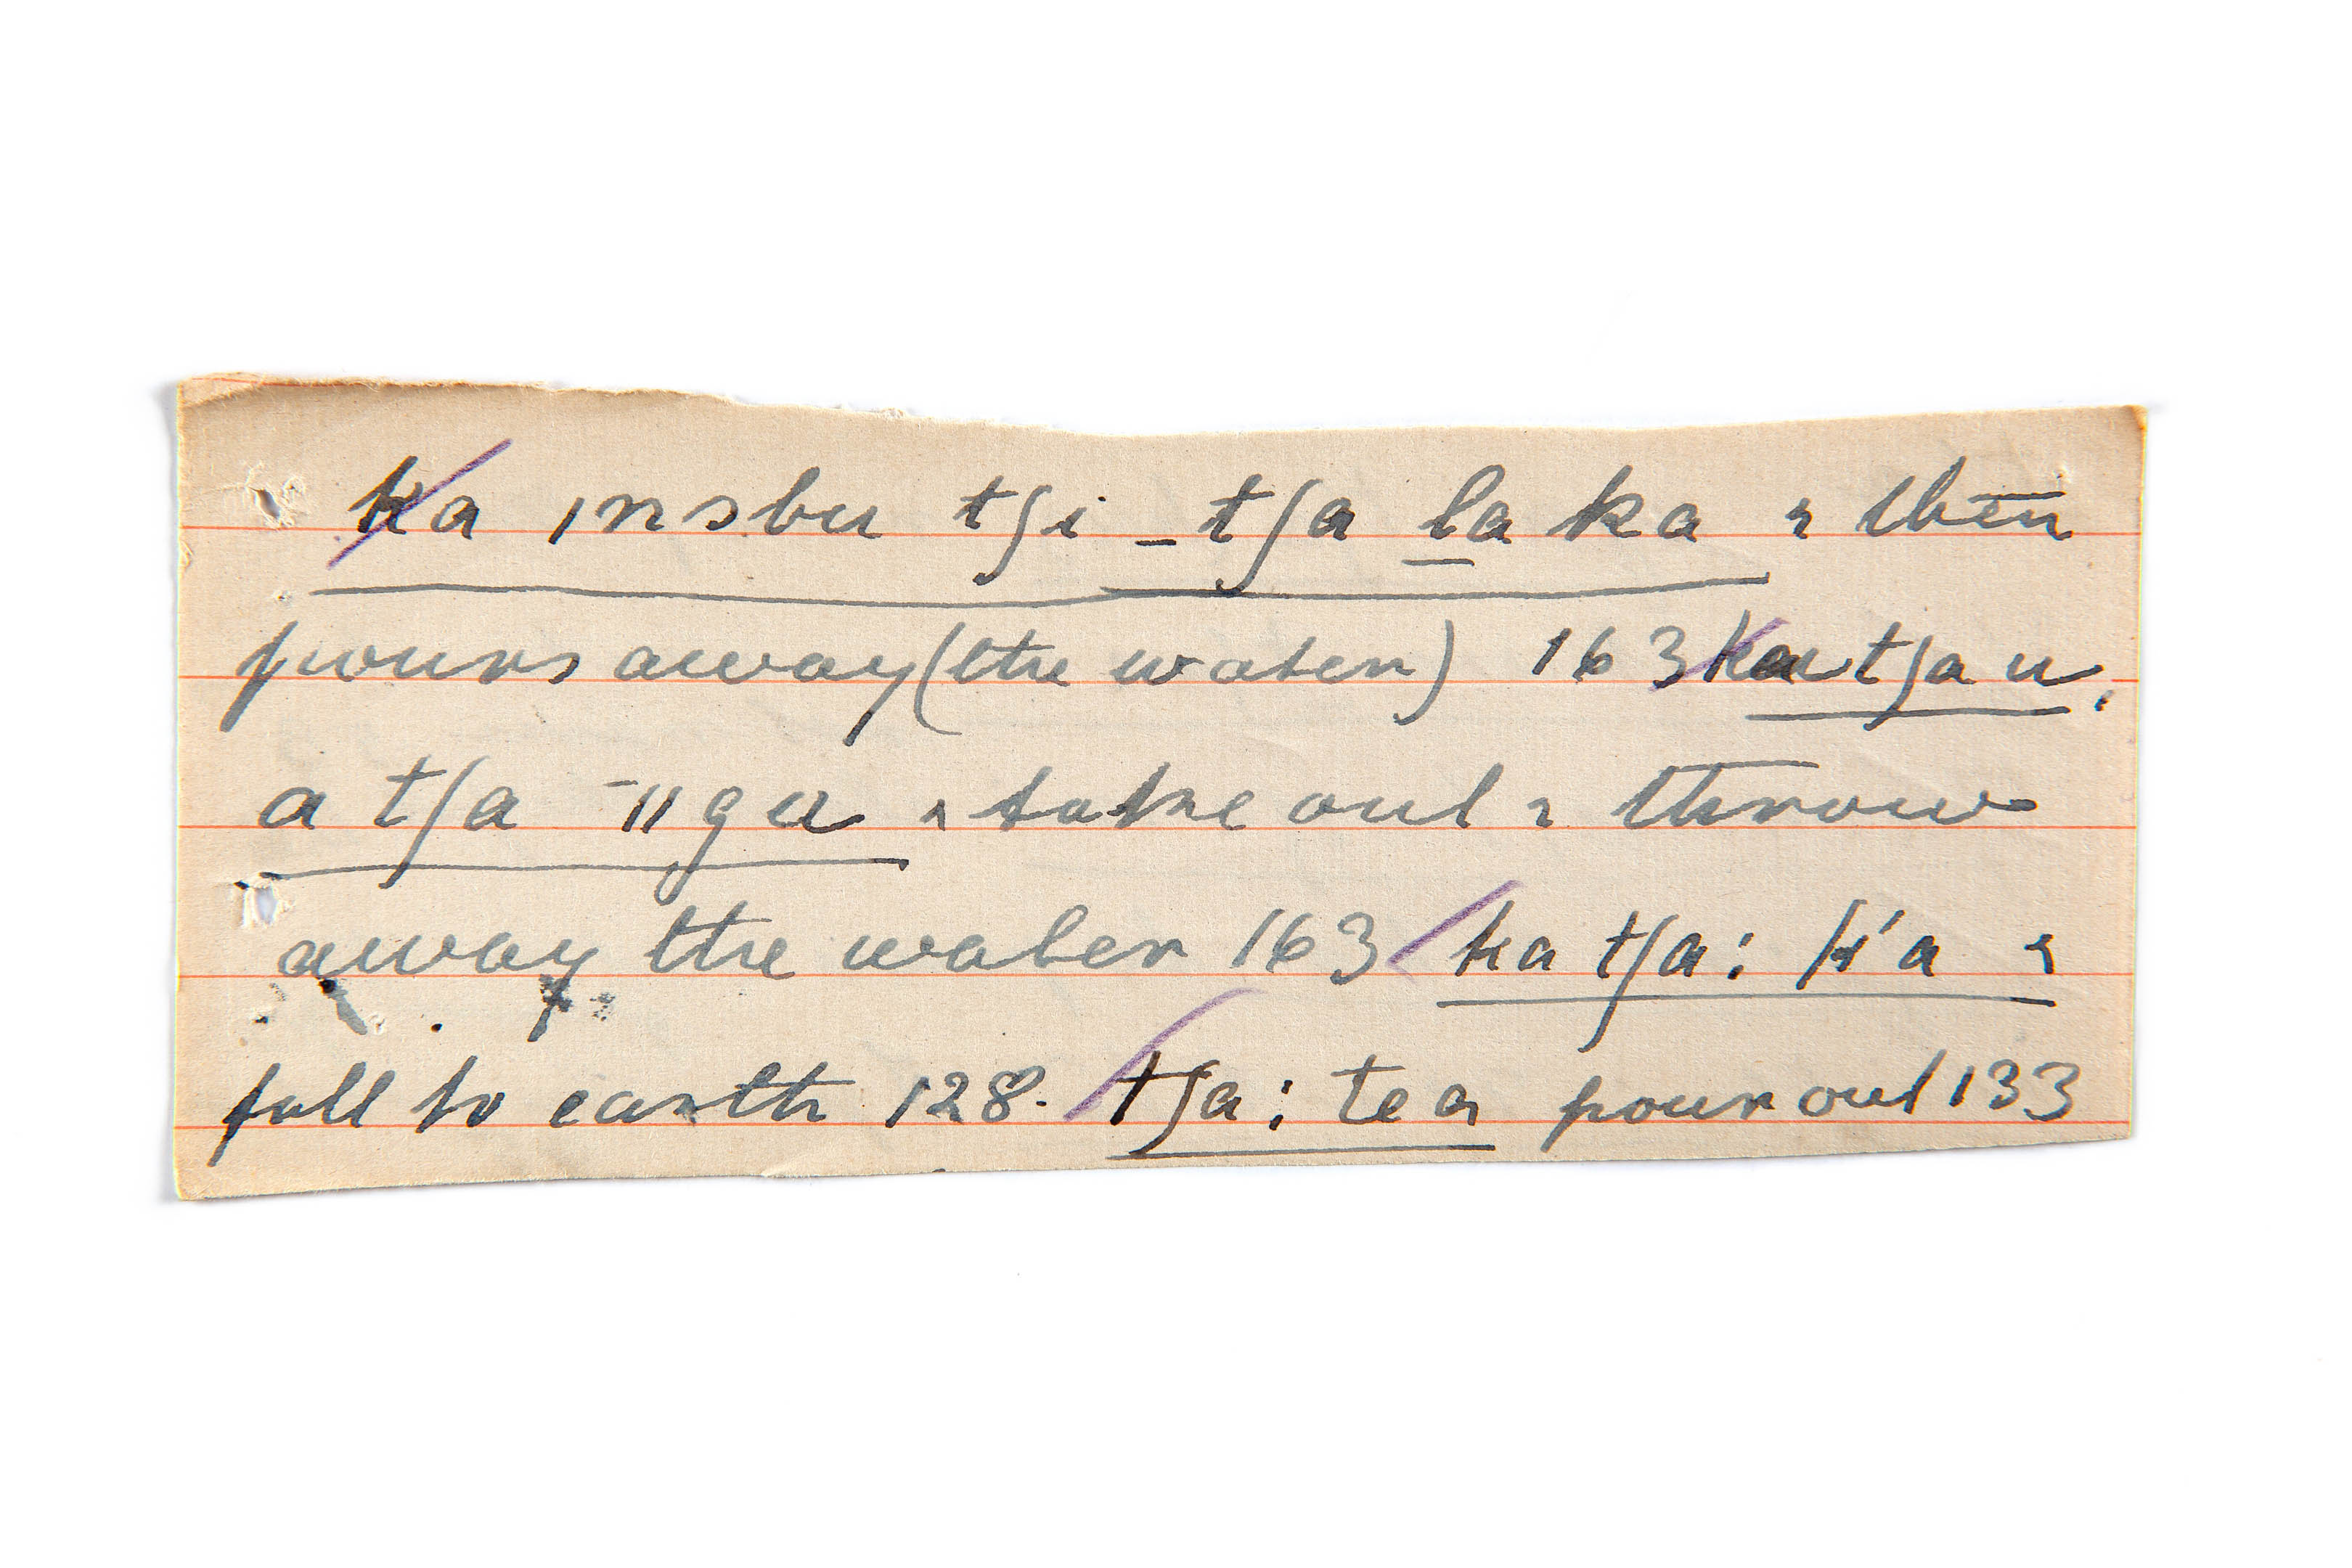 ka ınsbu tʃi _ tʃa la ka , then
pours away (the water) 163 Ka tʃa u,
a tʃa ‾ǁ ga , take out , throw
away the water 163 ka tʃa: k'a ,
fall to earth 128. tʃa: tea pour out 133